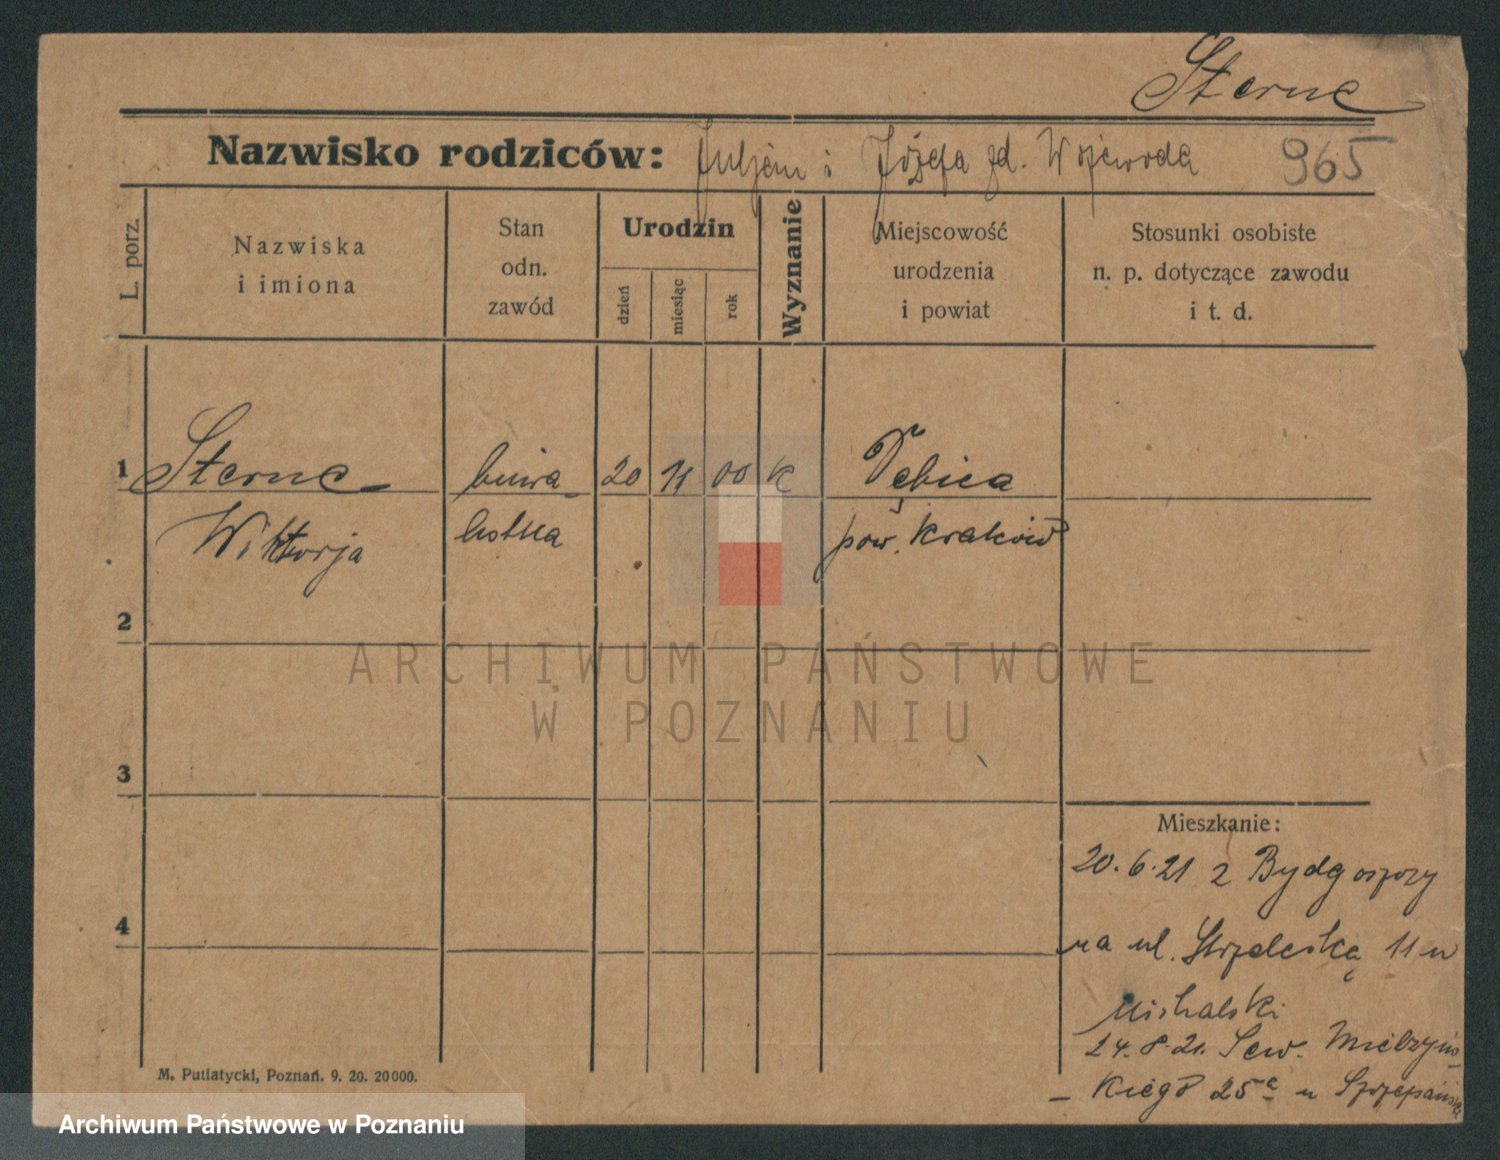 Sterne
Nazwisko rodziców: Juljan i Józefa zd. Wojewoda
965
L. porz.
Nazwiska
i imiona
Stan
odn.
zawód
Urodzin
dzień
miesiąc
rok
Wyznanie
Miejscowość
urodzenia
i powiat
Stosunki osobiste
n. p. dotyczące zawodu
i t. d.
1 Sterne 20 11 00 K
Wiktorja pow. Kraków
2
3
4
ARCHIWUM PAŃSTWOWE
W POZNANIU
Mieszkanie:
20.6.21 z Bydgoszczy
na ul. Strzelecką 11 u
Michalski
24.8.21. Sew. Mielżyńs-
kiego 25a u
M. Putiatycki, Poznań. 9. 20. 20000.
Archiwum Państwowe w Poznaniu